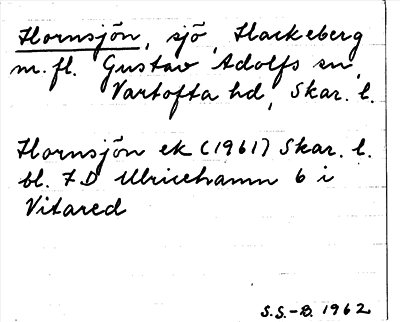 Hornsjön, sjö, Hackeberg
m. fl. Gustav Adolfs sn,
Vartofta hd, Skar. l.
Hornsjön ek (1961) Skar. l.
bl. 7D Ulricehamn 6 i
Vitared
S.S.-B. 1962